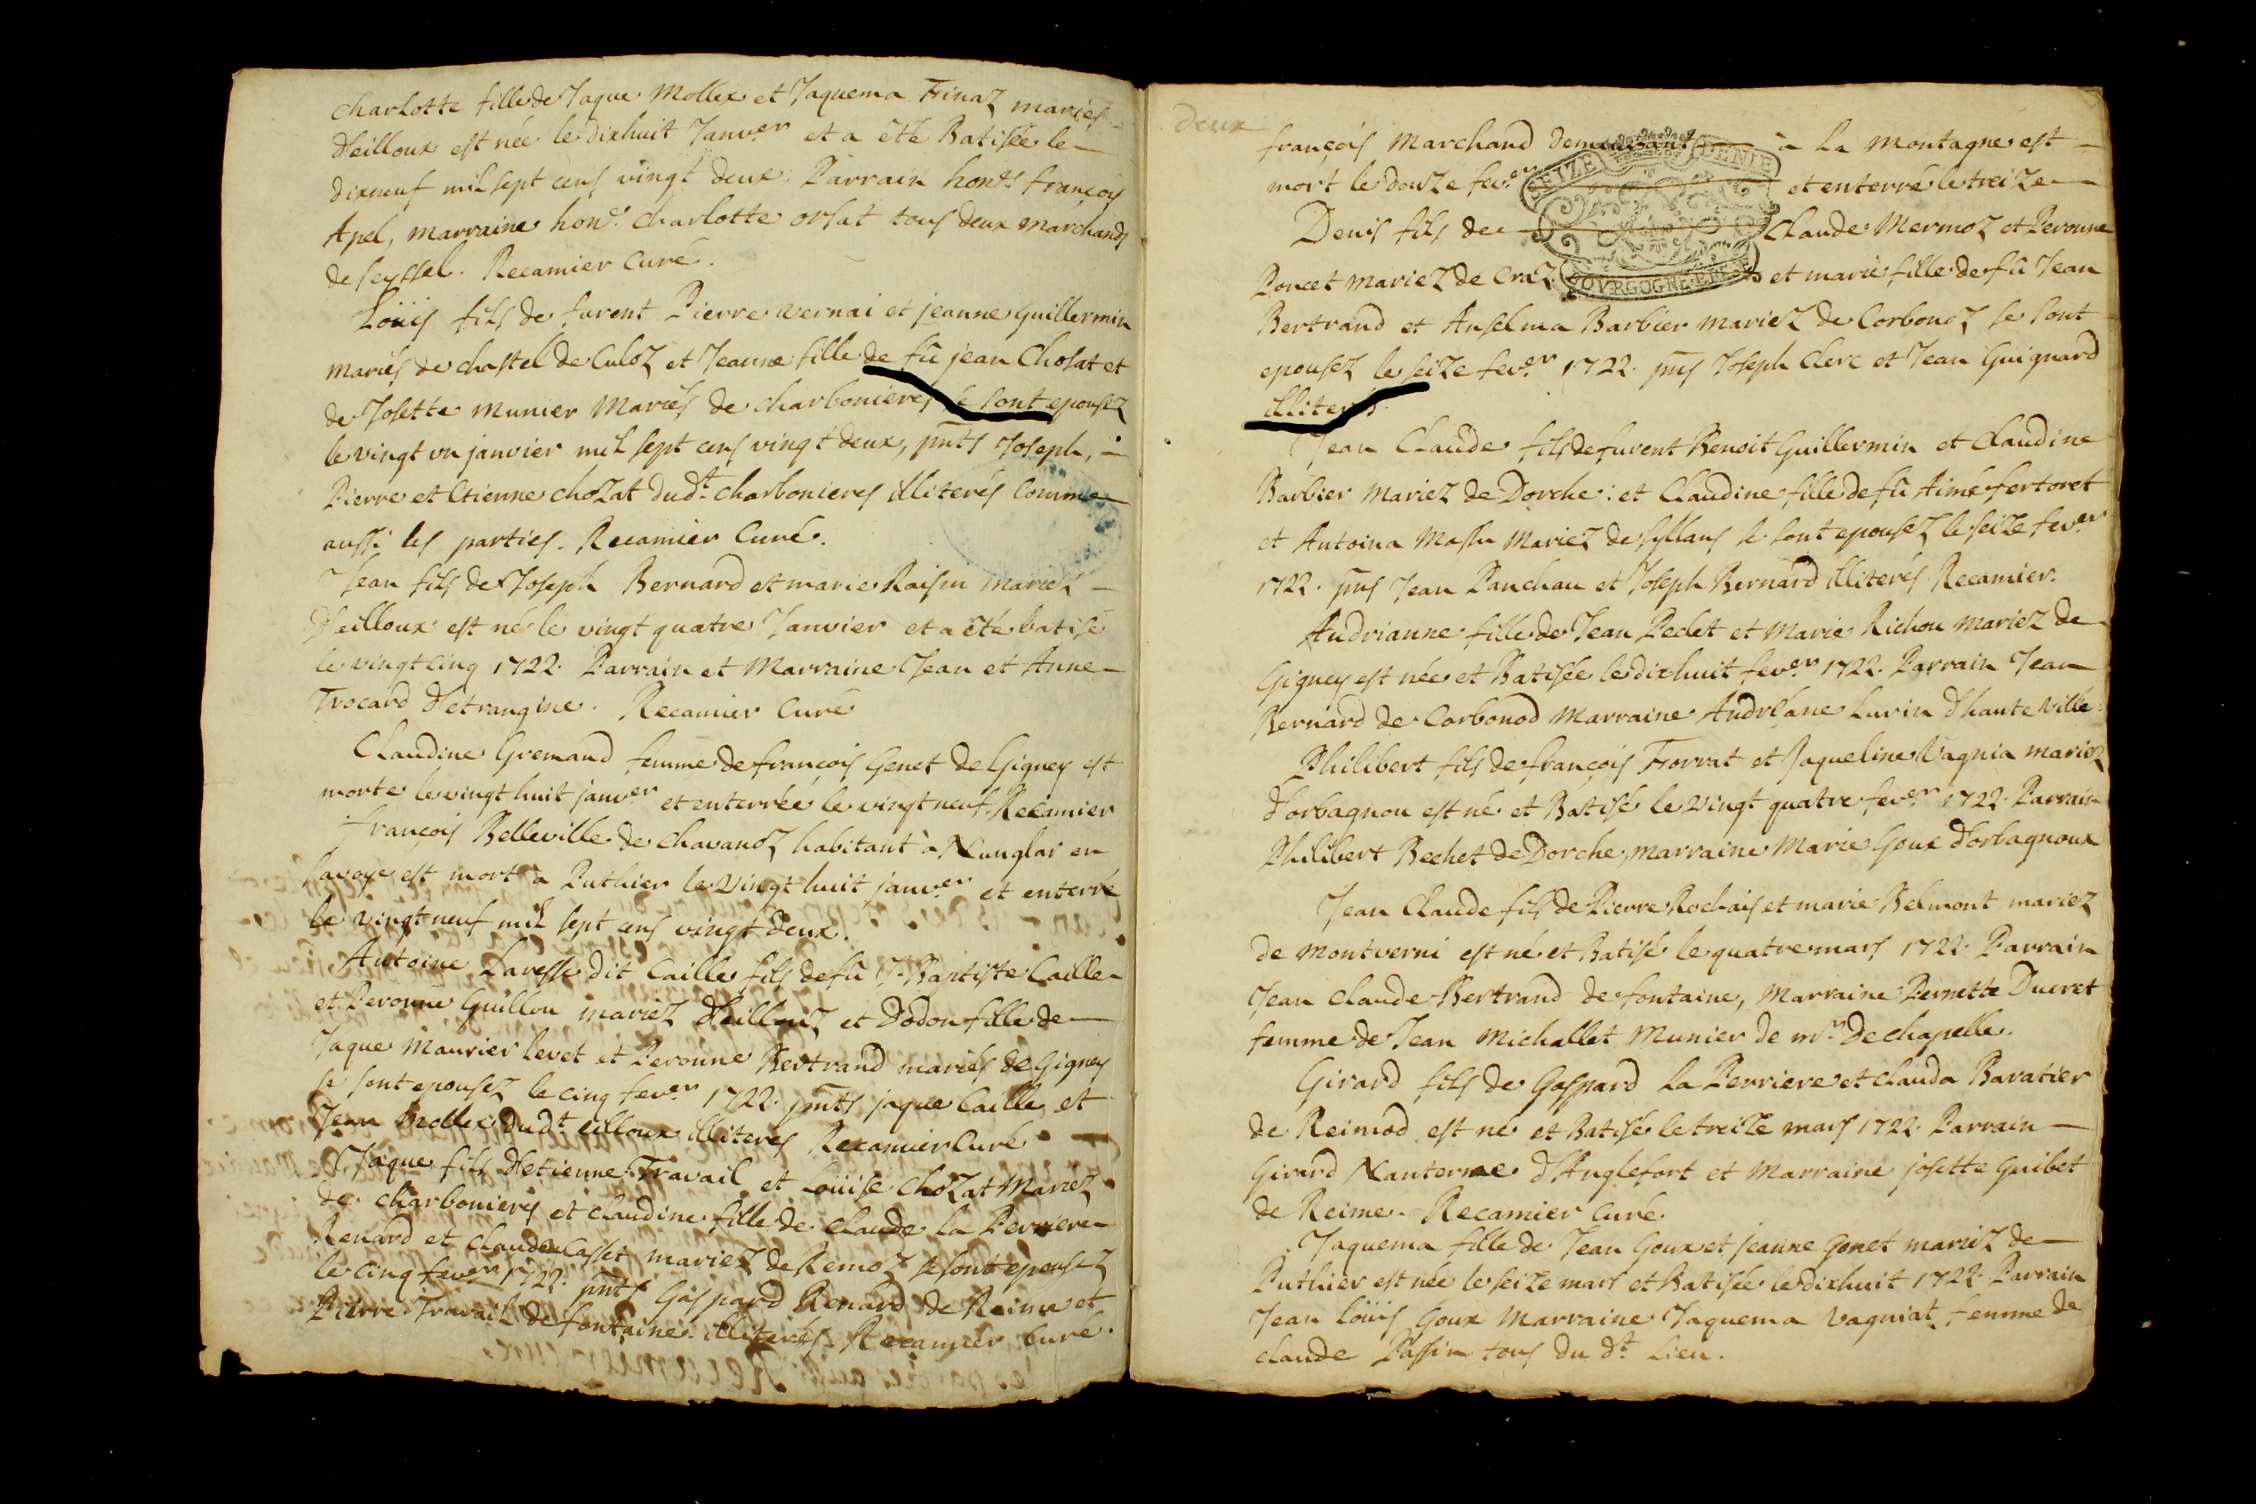 charlotte fille de Jaque Mollex et Jaquema Trinaz mariés
d'eilloux est née le dixhuit Janv.er et a été Batisée le
dixneuf mil sept cens vingt deux. Parrain hon.t françois
Apel, marraine hon.e charlotte orsat tous deux marchands
de seyssel. Recamier Curé.
Loüis fils de furent Pierre vernai et jeanne Guillermin
mariés de chastel de Culoz et Jeanne fille de fû jean Chosat et
de Josette munier Mariés de charbonieres se sont epousez
le vingt vn janvier mil sept cens vingt deux, pnts Joseph,
Pierre et Etienne chozat dud.t charbonieres illiterés comme
aussi les parties. Recamier Curé.
Jean fils de Joseph Bernard et marie Raisin mariez
d'eilloux est né le vingt quatre Janvier et a été batisé
le vingt cinq 1722. Parrain et Marraine Jean et Anne
Trocard d'etrangine. Recamier Curé
Claudine Gremaud femme de françois Genet de Gigney est
morte le vingt huit janv.er et enterrée le vingt neuf. Recamier
françois Belleville de chavanoz habitant à Nanglar en
savoye est mort à Puthier le vingt huit janv.er et enterré
le vingt neuf mil sept cens vingt deux.
Antoine Laresse dit Caille fils de fû J. Baptiste Caille
et Peronne Guillon mariez d'eilloux et Dodon fille de
Jaque Maurier levet et Peronne Bertrand mariés de Gigney
se sont epousez le cinq fev.er 1722. pnts jaque Caille et
Jean Mollex dud.t eilloux illiteres Recamier Curé
Jaque fils d'etienne Travail et Loüise chozat Mariez
de charbonieres et claudine fille de claude la Perriere
Renard et claude Casset mariez de Remoz se sont epousez
le cinq fev.er 1722. pnts Gaspard Renard de Reime et
Pierre Travail de fontaine illiterés. Recamier Curé.
deux
françois Marchand Demeurant à la montagne est
mort le douze fev.er et enterré le treize
SEIZE DENIE
BOVRGOGNE BRESSE
Denis fils de Claude Mermoz et Peronne
Poncet mariez de Craz et marie fille de fû Jean
Bertrand et Anselma Barbier mariez de Corbonoz se sont
epousez le seize fev.er 1722. pns Joseph Clerc et Jean Guignard
illiterés.
Jean Claude fils de furent Benoit Guillermin et Claudine
Barbier Mariez de Dorche: et Claudine fille de fû Aimé fertoret
et Antoina Massu Mariez de syllans se sont epousez le seize fev.er
1722. pns Jean Panchau et Joseph Bernard illiterés. Recamier.
Audrianne fille de Jean Peclet et Marie Richon mariez de
Gigney est née et Batisée le dixhuit fev.er 1722. Parrain Jean
Bernard de Corbonod Marraine Audréane Lurin d'hauteville.
Philibert fils de françois Torrat et Jaqueline Vagnia mariez
d'orbagnou est né et Batisé le vingt quatre fev.er 1722. Parrain
Philibert Bechet de Dorche, marraine Marie Goux d'orbagnoux
Jean Claude fils de Pierre Rochais et marie Belmont mariez
de montverni est né et Batisé le quatre mars 1722. Parrain
Jean claude Bertrand de fontaine, Marraine Pernette Ducret
femme de Jean Michallet Munier de mr. De chapelle.
Girard fils de Gaspard la Perriere et clauda Baratier
de Reimod est né et Batisé le treize mars 1722. Parrain
Girard Nanterme d'Anglefort et Marraine josette Guibet
de Reime. Recamier Curé.
Jaquema fille de Jean Goux et jeanne Gonet mariez de
Puthier est née le seize mars et Batisée le dixhuit 1722. Parrain
Jean Loüis Goux Marraine Jaquema Vagniat femme de
claude Passin tous du d.t Lieu.